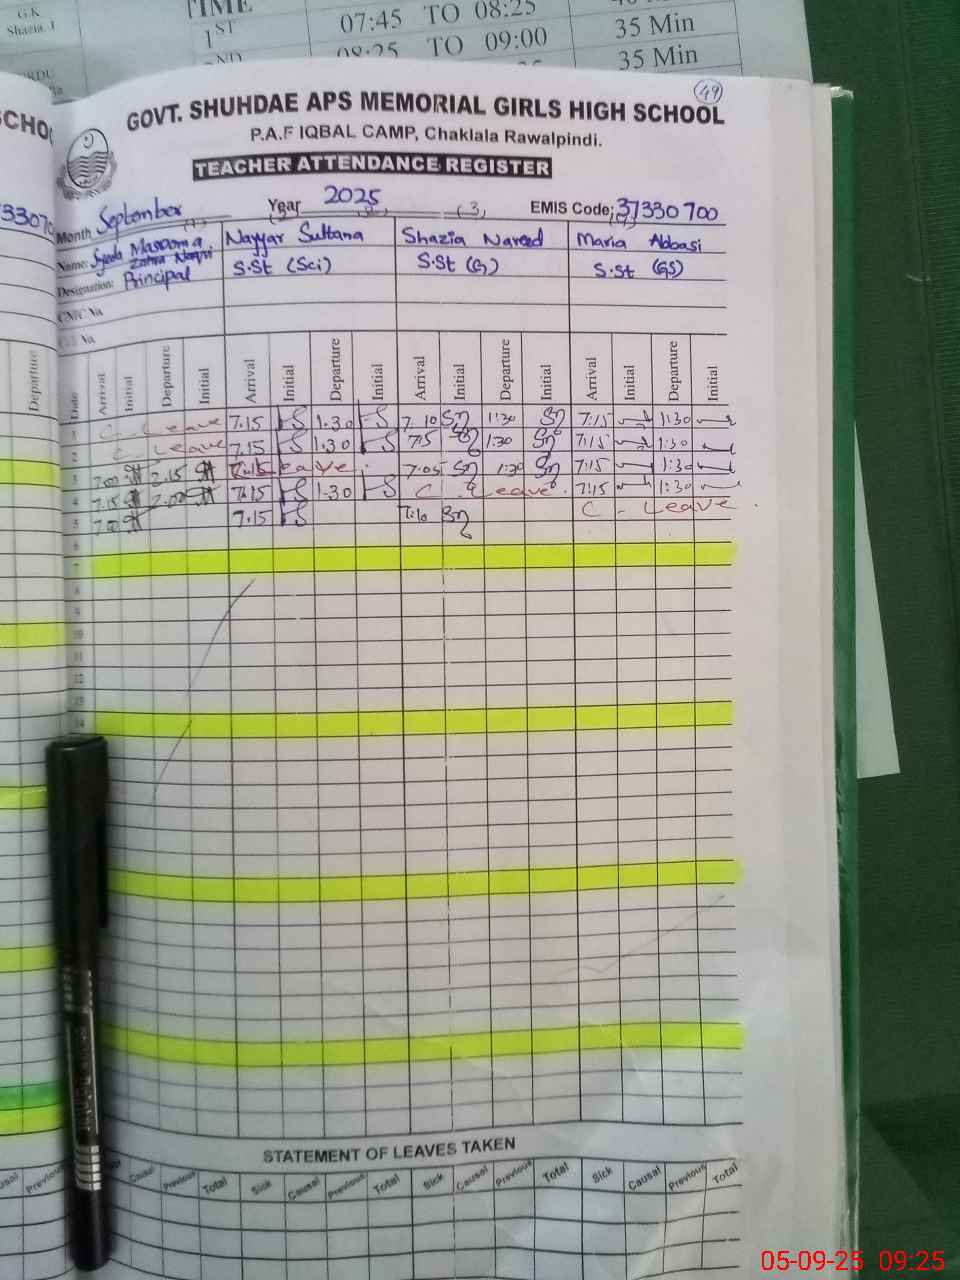 G.K
Shazia. I
TIME
1ST 07:45 TO 08:25
2ND 08:25 TO 09:00 35 Min
35 Min
49
GOVT. SHUHDAE APS MEMORIAL GIRLS HIGH SCHOOL
P.A.F IQBAL CAMP, Chaklala Rawalpindi.
TEACHER ATTENDANCE REGISTER
Month September Year 2025 EMIS Code; 37330700
(1) (2) (3)
Name: Syeda Masooma Zahra Naqvi Nayyar Sultana Shazia Naveed Maria Abbasi
Designation: Principal S.St (Sci) S.St (G) S.St (GS)
CNIC No.
Date Arrival Initial Departure Initial Arrival Initial Departure Initial Arrival Initial Departure Initial Arrival Initial Departure Initial
1 C. Leave 7.15 1.30 7.10 1:30 7:15 1:30
2 C. Leave 7.15 1.30 7.15 1:30 7:15 1:30
3 7.00 2.15 C. Leave. 7.05 1:30 7:15 1:30
4 7.15 2.00 7.15 1.30 C. Leave. 7:15 1:30
5 7.00 7.15 7.10 C - Leave.
6
7
8
9
10
11
12
13
14
STATEMENT OF LEAVES TAKEN
Causal Previous Total Sick Causal Previous Total Sick Causal Previous Total Sick Causal Previous Total
SCHOOL
Departure
Previous
05-09-25 09:25